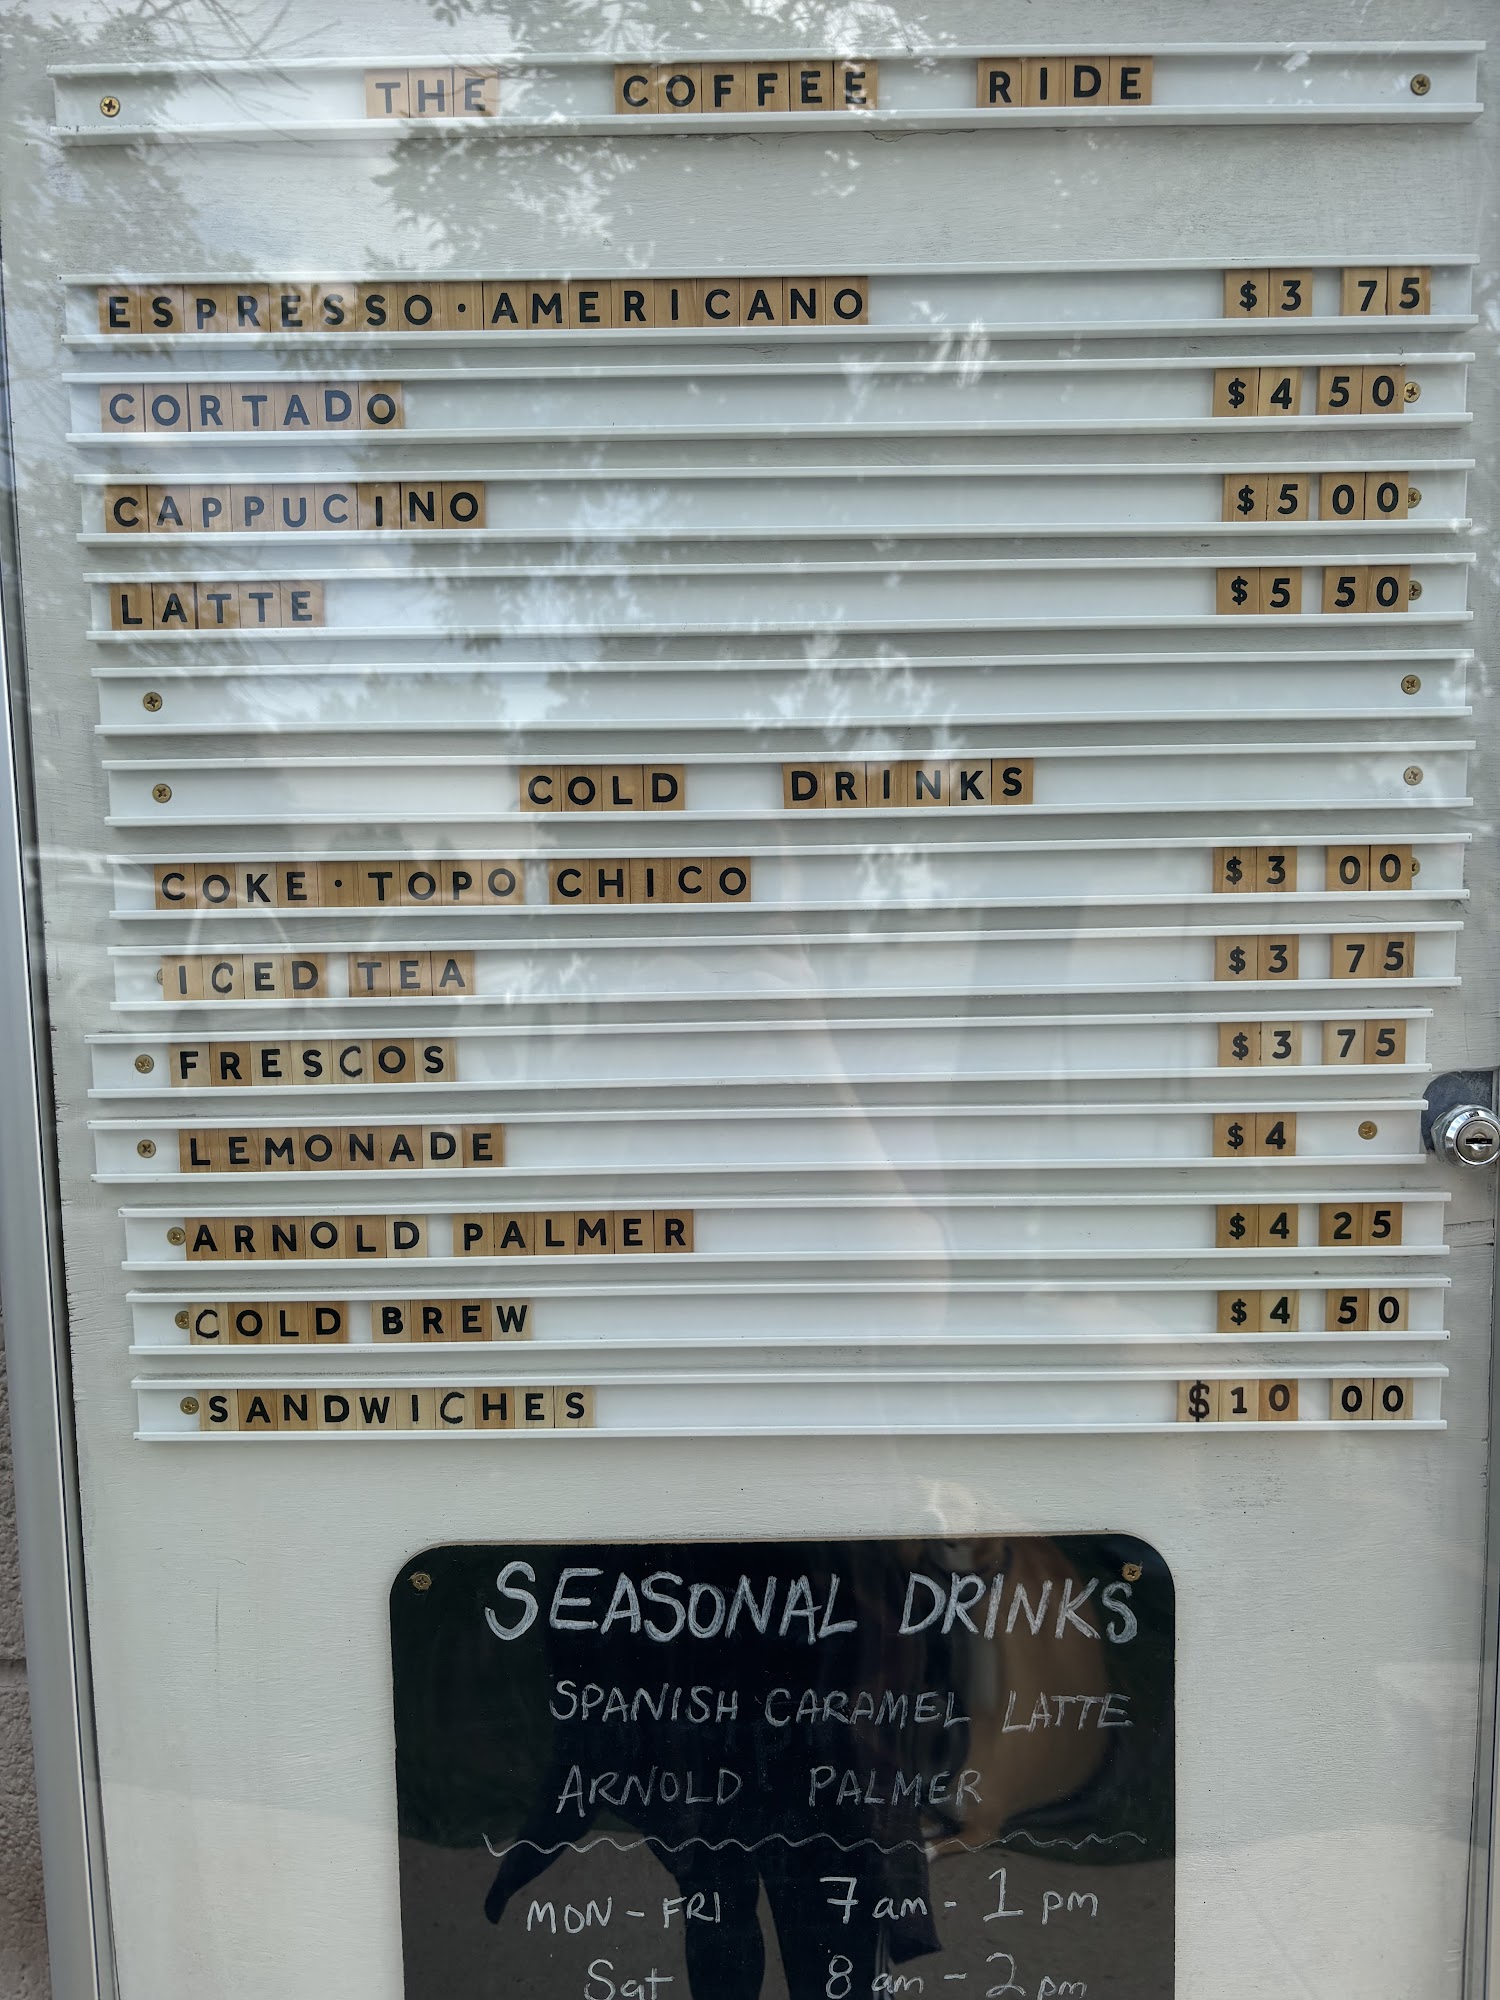 THE COFFEE RIDE
ESPRESSO·AMERICANO $3 75
CORTADO $4 50
CAPPUCINO $5 00
LATTE $5 50
COLD DRINKS
COKE·TOPO CHICO $3 00
ICED TEA $3 75
FRESCOS $3 75
LEMONADE $4
ARNOLD PALMER $4 25
COLD BREW $4 50
SANDWICHES $10 00
SEASONAL DRINKS
SPANISH CARAMEL LATTE
ARNOLD PALMER
MON-FRI 7am-1pm
Sat 8am-2pm